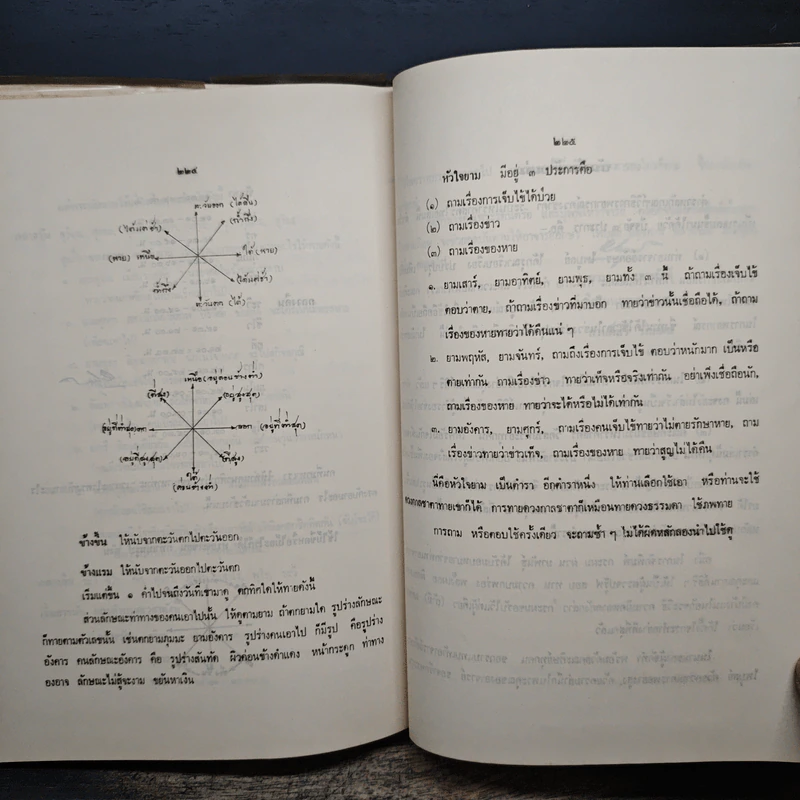 ๒๒๔
ตะวันออก (ได้คืน)
(ได้แต่ช้า)
(พาย) เหนือ
ใต้ (พาย)
(ได้แต่ช้า)
ตะวันตก (ได้)
เหนือ
(ที่สูง)
ออก (อยู่ที่ต่ำสุด)
ใต้
(ที่สูง)
ข้างขึ้น ให้นับจากตะวันตกไปตะวันออก
ข้างแรม ให้นับจากตะวันออกไปตะวันตก
เริ่มแต่ขึ้น ๑ ค่ำไปจนถึงวันที่เขามาดู ตกทิศใดให้ทายดังนี้
ส่วนลักษณะท่าทางของคนเอาไปนั้น ให้ดูตามยาม ถ้าตกยามใด รูปร่างลักษณะ
ก็ทายตามตัวเลขนั้น เช่นตกยามภุมมะ ยามอังคาร รูปร่างคนเอาไป ก็มีรูป คือรูปร่าง
อังคาร คนลักษณะอังคาร คือ รูปร่างสันทัด ผิวค่อนข้างดำแดง หน้ากระดูก ท่าทาง
องอาจ ลักษณะไม่สู้จะงาม ขยันหาเงิน
๒๒๕
หัวใจยาม มีอยู่ ๓ ประการคือ
(๑) ถามเรื่องการเจ็บไข้ได้ป่วย
(๒) ถามเรื่องข่าว
(๓) ถามเรื่องของหาย
๑. ยามเสาร์, ยามอาทิตย์, ยามพุธ, ยามทั้ง ๓ นี้ ถ้าถามเรื่องเจ็บไข้
ตอบว่าตาย, ถ้าถามเรื่องข่าวที่มาบอก ทายว่าข่าวนั้นเชื่อถือได้, ถ้าถาม
เรื่องของหายทายว่าได้คืนแน่ ๆ
๒. ยามพฤหัส, ยามจันทร์, ถามถึงเรื่องการเจ็บไข้ ตอบว่าหนักมาก เป็นหรือ
ตายเท่ากัน ถามเรื่องข่าว ทายว่าเท็จหรือจริงเท่ากัน อย่าเพิ่งเชื่อถือนัก,
ถามเรื่องของหาย ทายว่าจะได้หรือไม่ได้เท่ากัน
๓. ยามอังคาร, ยามศุกร์, ถามเรื่องคนเจ็บไข้ทายว่าไม่ตายรักษาหาย, ถาม
เรื่องข่าวทายว่าข่าวเท็จ, ถามเรื่องของหาย ทายว่าสูญไม่ได้คืน
นี่คือหัวใจยาม เป็นตำรา อีกตำราหนึ่ง ให้ท่านเลือกใช้เอา หรือท่านจะใช้
ดวงกาลชาตาทายเขาก็ได้ การทายดวงกาลชาตาก็เหมือนทายดวงธรรมดา ใช้ภพทาย
การถาม หรือตอบใช้ครั้งเดียว จะถามซ้ำ ๆ ไม่ได้ผิดหลักลองนำไปใช้ดู